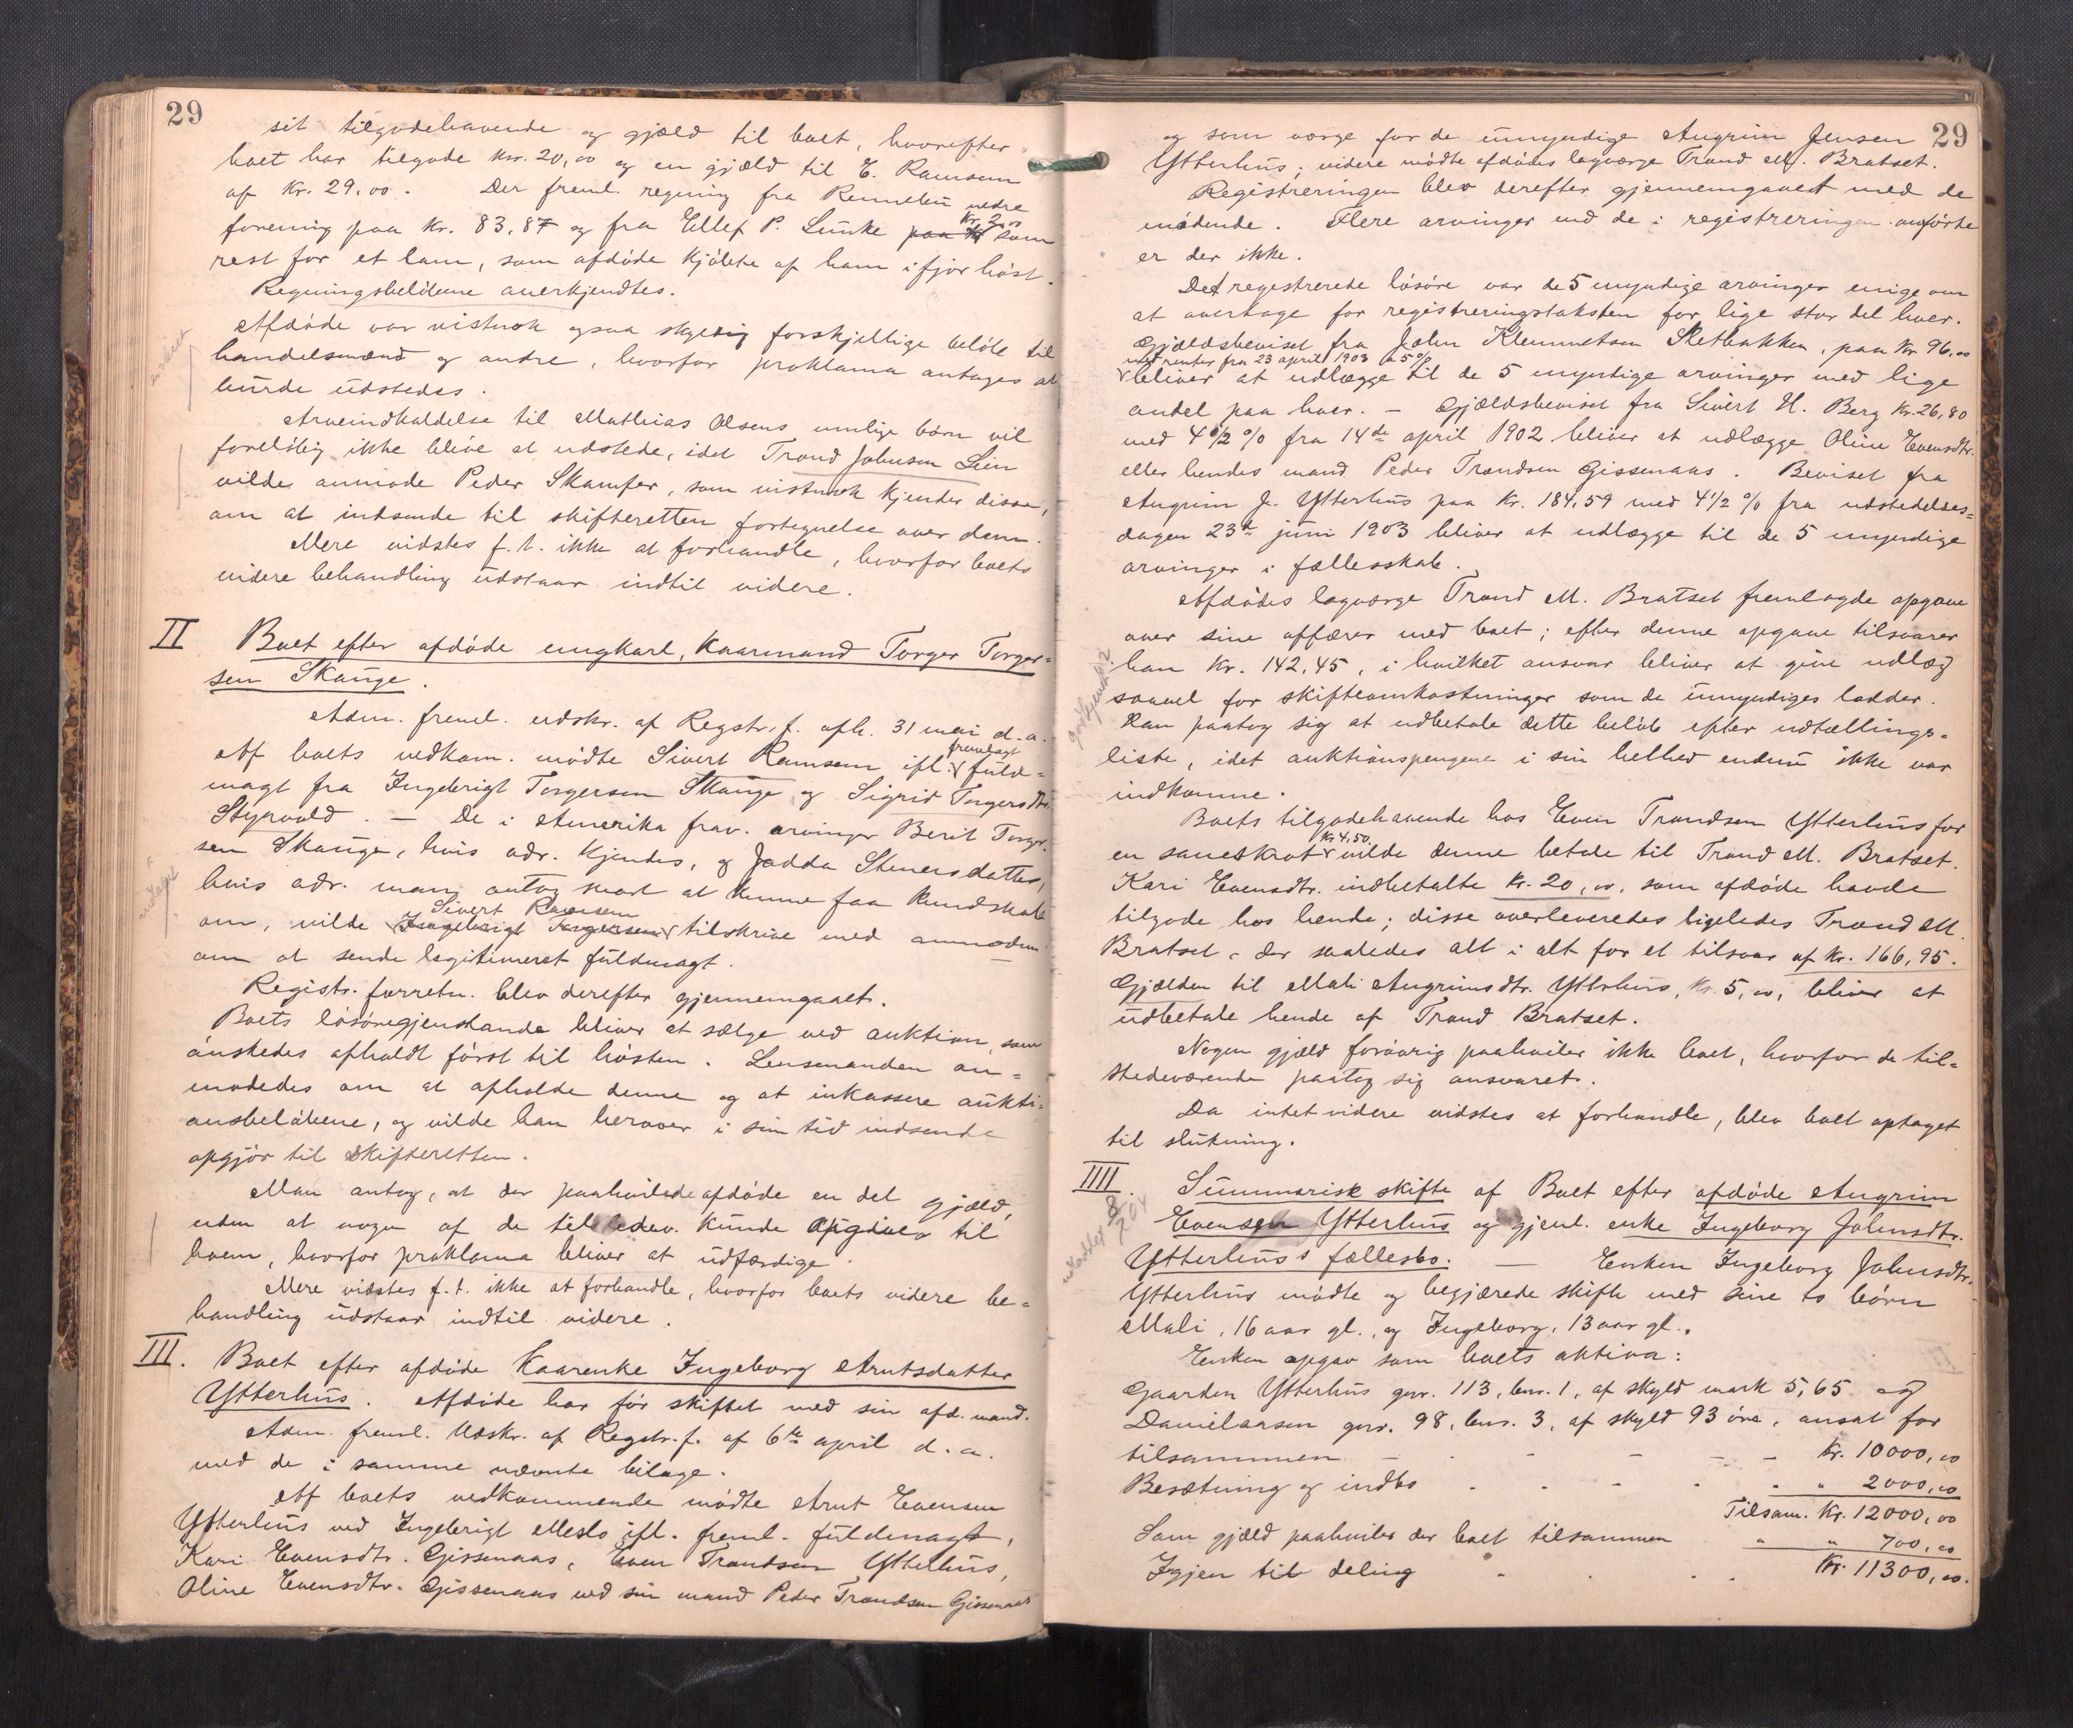 29
sit tilgodehavende og gjæld til boet, hvorefter
boet har tilgode kr. 20,00 og en gjæld til E. Ramsem
af Kr. 29.00. Der freml. regning fra Rennebu nedre
forening paa Kr. 83,87 og fra Ellef P. Lunke paa kr Kr. 2,00 som
rest for et lam, som afdøde kjøbte af ham i fjor høst.
Regningsbeløbene anerkjendtes.
Afdøde var vistnok ogsaa skyldig forskjellige beløb til
handelsmænd og andre, hvorfor proklama antages at
burde udstedes.
Arveindkaldelse til Mathias Olsens umlige børn vil
foreløbig ikke blive at udstede, idet Trond Johnsen Lien
vilde anmode Peder Skamfer, som vistnok kjender disse,
om at indsende til skifteretten fortegnelse over dem.
Mere vidstes f.t. ikke at forhandle, hvorfor boets
videre behandling udstaar indtil videre.
II Boet efter afdøde ungkarl, kaarmand Torger Torger-
sen Skauge.
Adm. freml. udskr. af Regstr.f. afh. 31 mai d.a.
Af boets vedkom. mødte Sivert Ramsem ifl. fremlagt fuld-
magt fra Ingebrigt Torgersen Skauge og Sigrid Torgersdtr.
Styrvold. — De i Amerika frav. arvinger Berit Torger-
sen Skauge, hvis adr. kjendes, og Jødda Stenersdatter,
hvis adr. man antog snart at kunne faa kundskab
om, vilde Ingebrigt Torgersen Sivert Ramsem tilskrive med anmodn.
om at sende legitimeret fuldmagt.
Registr. forretn. blev derefter gjennemgaaet.
Boets løsøregjenstande bliver at sælge ved auktion, som
ønskedes afholdt først til høsten. Lensmanden an-
modedes om at afholde denne og at inkassere aukti-
onsbeløbene, og vilde han herover i sin tid indsende
opgjør til skifteretten.
Man antog, at der paahvilede afdøde en del gjæld,
uden at nogen af de tilstedev. kunde opgive til
hvem, hvorfor proklama bliver at udfærdige.
Mere vidstes f.t. ikke at forhandle, hvorfor boets videre be-
handling udstaar indtil videre.
III. Boet efter afdøde kaarenke Ingeborg Arntsdatter
Ytterhus. Afdøde har før skiftet med sin afd. mand.
Adm. freml. Udskr. af Regstr.f. af 6te april d.a.
med de i samme nævnte bilage.
Af boets vedkommende mødte Arnt Evensen
Ytterhus ved Ingebrigt Meslo ifl. freml. fuldmagt,
Kari Evensdtr. Gissenaas, Even Trondsen Ytterhus,
Oline Evensdtr. Gissenaas ved sin mand Peder Trondsen Gissenaas
29
og som værge for de umyndige Angrim Jensen
Ytterhus; videre mødte afdødes lagværge Trond M. Bratset.
Registreringen blev derefter gjennemgaaet med de
mødende. Flere arvinger end de i registreringen anførte
er der ikke.
Det registrerede løsøre var de 5 myndige arvinger enige om
at overtage for registreringstaksten for lige stor del hver.
Gjældsbeviset fra John Klemmetsen Sletbakken, paa Kr. 96,00
med renter fra 23 april 1903 à 5%
bliver at udlægge til de 5 myndige arvinger med lige
andel paa hver. — Gjældsbeviset fra Sivert H. Berg Kr. 26,80
med 4 1/2 % fra 14de april 1902 bliver at udlægge Oline Evensdtr.
eller hendes mand Peder Trondsen Gissenaas. Beviset fra
Angrim J. Ytterhus paa Kr. 184,59 med 4 1/2 % fra udstedelses-
dagen 23de juni 1903 bliver at udlægge til de 5 myndige
arvinger i fællesskab.
Afdødes lagværge Trond M. Bratset fremlagde opgave
over sine affærer med boet; efter denne opgave tilsvarer
han Kr. 142,45, i hvilket ansvar bliver at give udlæg
saavel for skifteomkostninger som de umyndiges lodder.
Han paatog sig at udbetale dette beløb efter udtællings-
liste, idet auktionspengene i sin helhed endnu ikke var
indkomne.
Boets tilgodehavende hos Even Trondsen Ytterhus for
en saueskrot Kr 4,50 vilde denne betale til Trond M. Bratset.
Kari Evensdtr. indbetalte Kr. 20,00, som afdøde havde
tilgode hos hende; disse overleveredes ligeledes Trond M.
Bratset, der saaledes alt i alt for et tilsvar af Kr. 166,95.
Gjælden til Mali Angrimsdtr. Ytterhus, Kr. 5,00, bliver at
udbetale hende af Trond Bratset.
Nogen gjæld forøvrig paahviler ikke boet, hvorfor de til-
stedeværende paatog sig ansvaret.
Da intet videre vidstes at forhandle, blev boet optaget
til slutning.
IIII. Summarisk skifte af Boet efter afdøde Angrim
Evensen Ytterhus og gjenl. enke Ingeborg Johnsdtr.
Ytterhus's fællesbo. — Enken Ingeborg Johnsdtr.
Ytterhus mødte og begjærede skifte med sine to børn
Mali, 16 aar gl., og Ingeborg, 13 aar gl.
Enken opgav som boets aktiva:
Gaarden Ytterhus gnr. 113, bnr. 1, af skyld mark 5,65 og
Danielaasen gnr. 98, bnr. 3, af skyld 93 øre, ansat for
tilsammen - - - - - Kr. 10000,00
Besætning og indbo - - - - " 2000,00
Tilsam. Kr. 12000,00
Som gjæld paahviler der boet tilsammen " " 700,00
Igjen til deling - - - Kr. 11300,00.